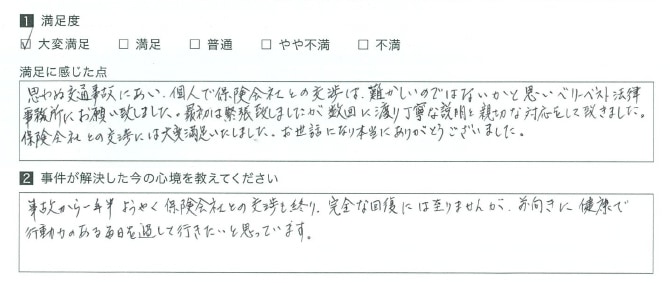 1 満足度
☑ 大変満足 □ 満足 □ 普通 □ やや不満 □ 不満
満足に感じた点
思わぬ交通事故にあい、個人で保険会社との交渉は、難かしいのではないかと思いベリーベスト法律
事務所にお願い致しました。最初は緊張致しましたが数回に渡り丁寧な説明と親切な対応をして頂きました。
保険会社との交渉には大変満足いたしました。お世話になり本当にありがとうございました。
2 事件が解決した今の心境を教えてください
事故から一年半ようやく保険会社との交渉も終り、完全な回復には至りませんが、前向きに健康で
行動力のある毎日を過して行きたいと思っています。